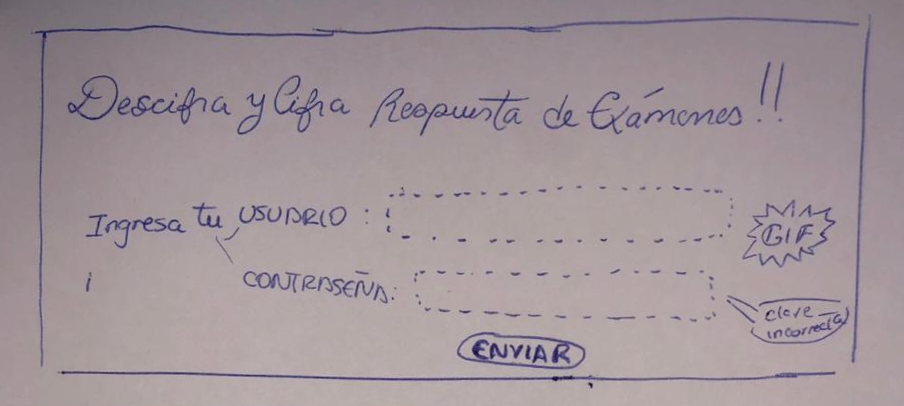 Descifra y Cifra Respuesta de Exámenes!!
Ingresa tu USUARIO :
GIF
i
CONTRASEÑA:
clave
incorrect(a)
ENVIAR